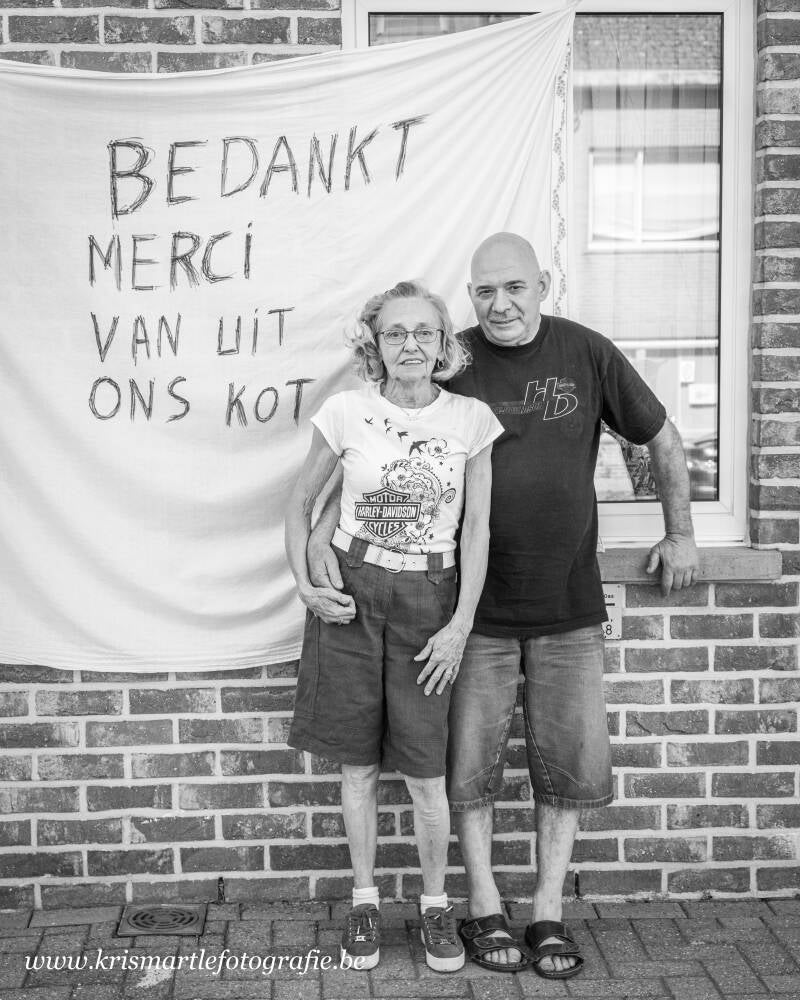 BEDANKT
MERCi
VAN UiT
ONS KOT
HD
MOTOR
HARLEY-DAVIDSON
CYCLES
8
www.krismartlefotografie.be